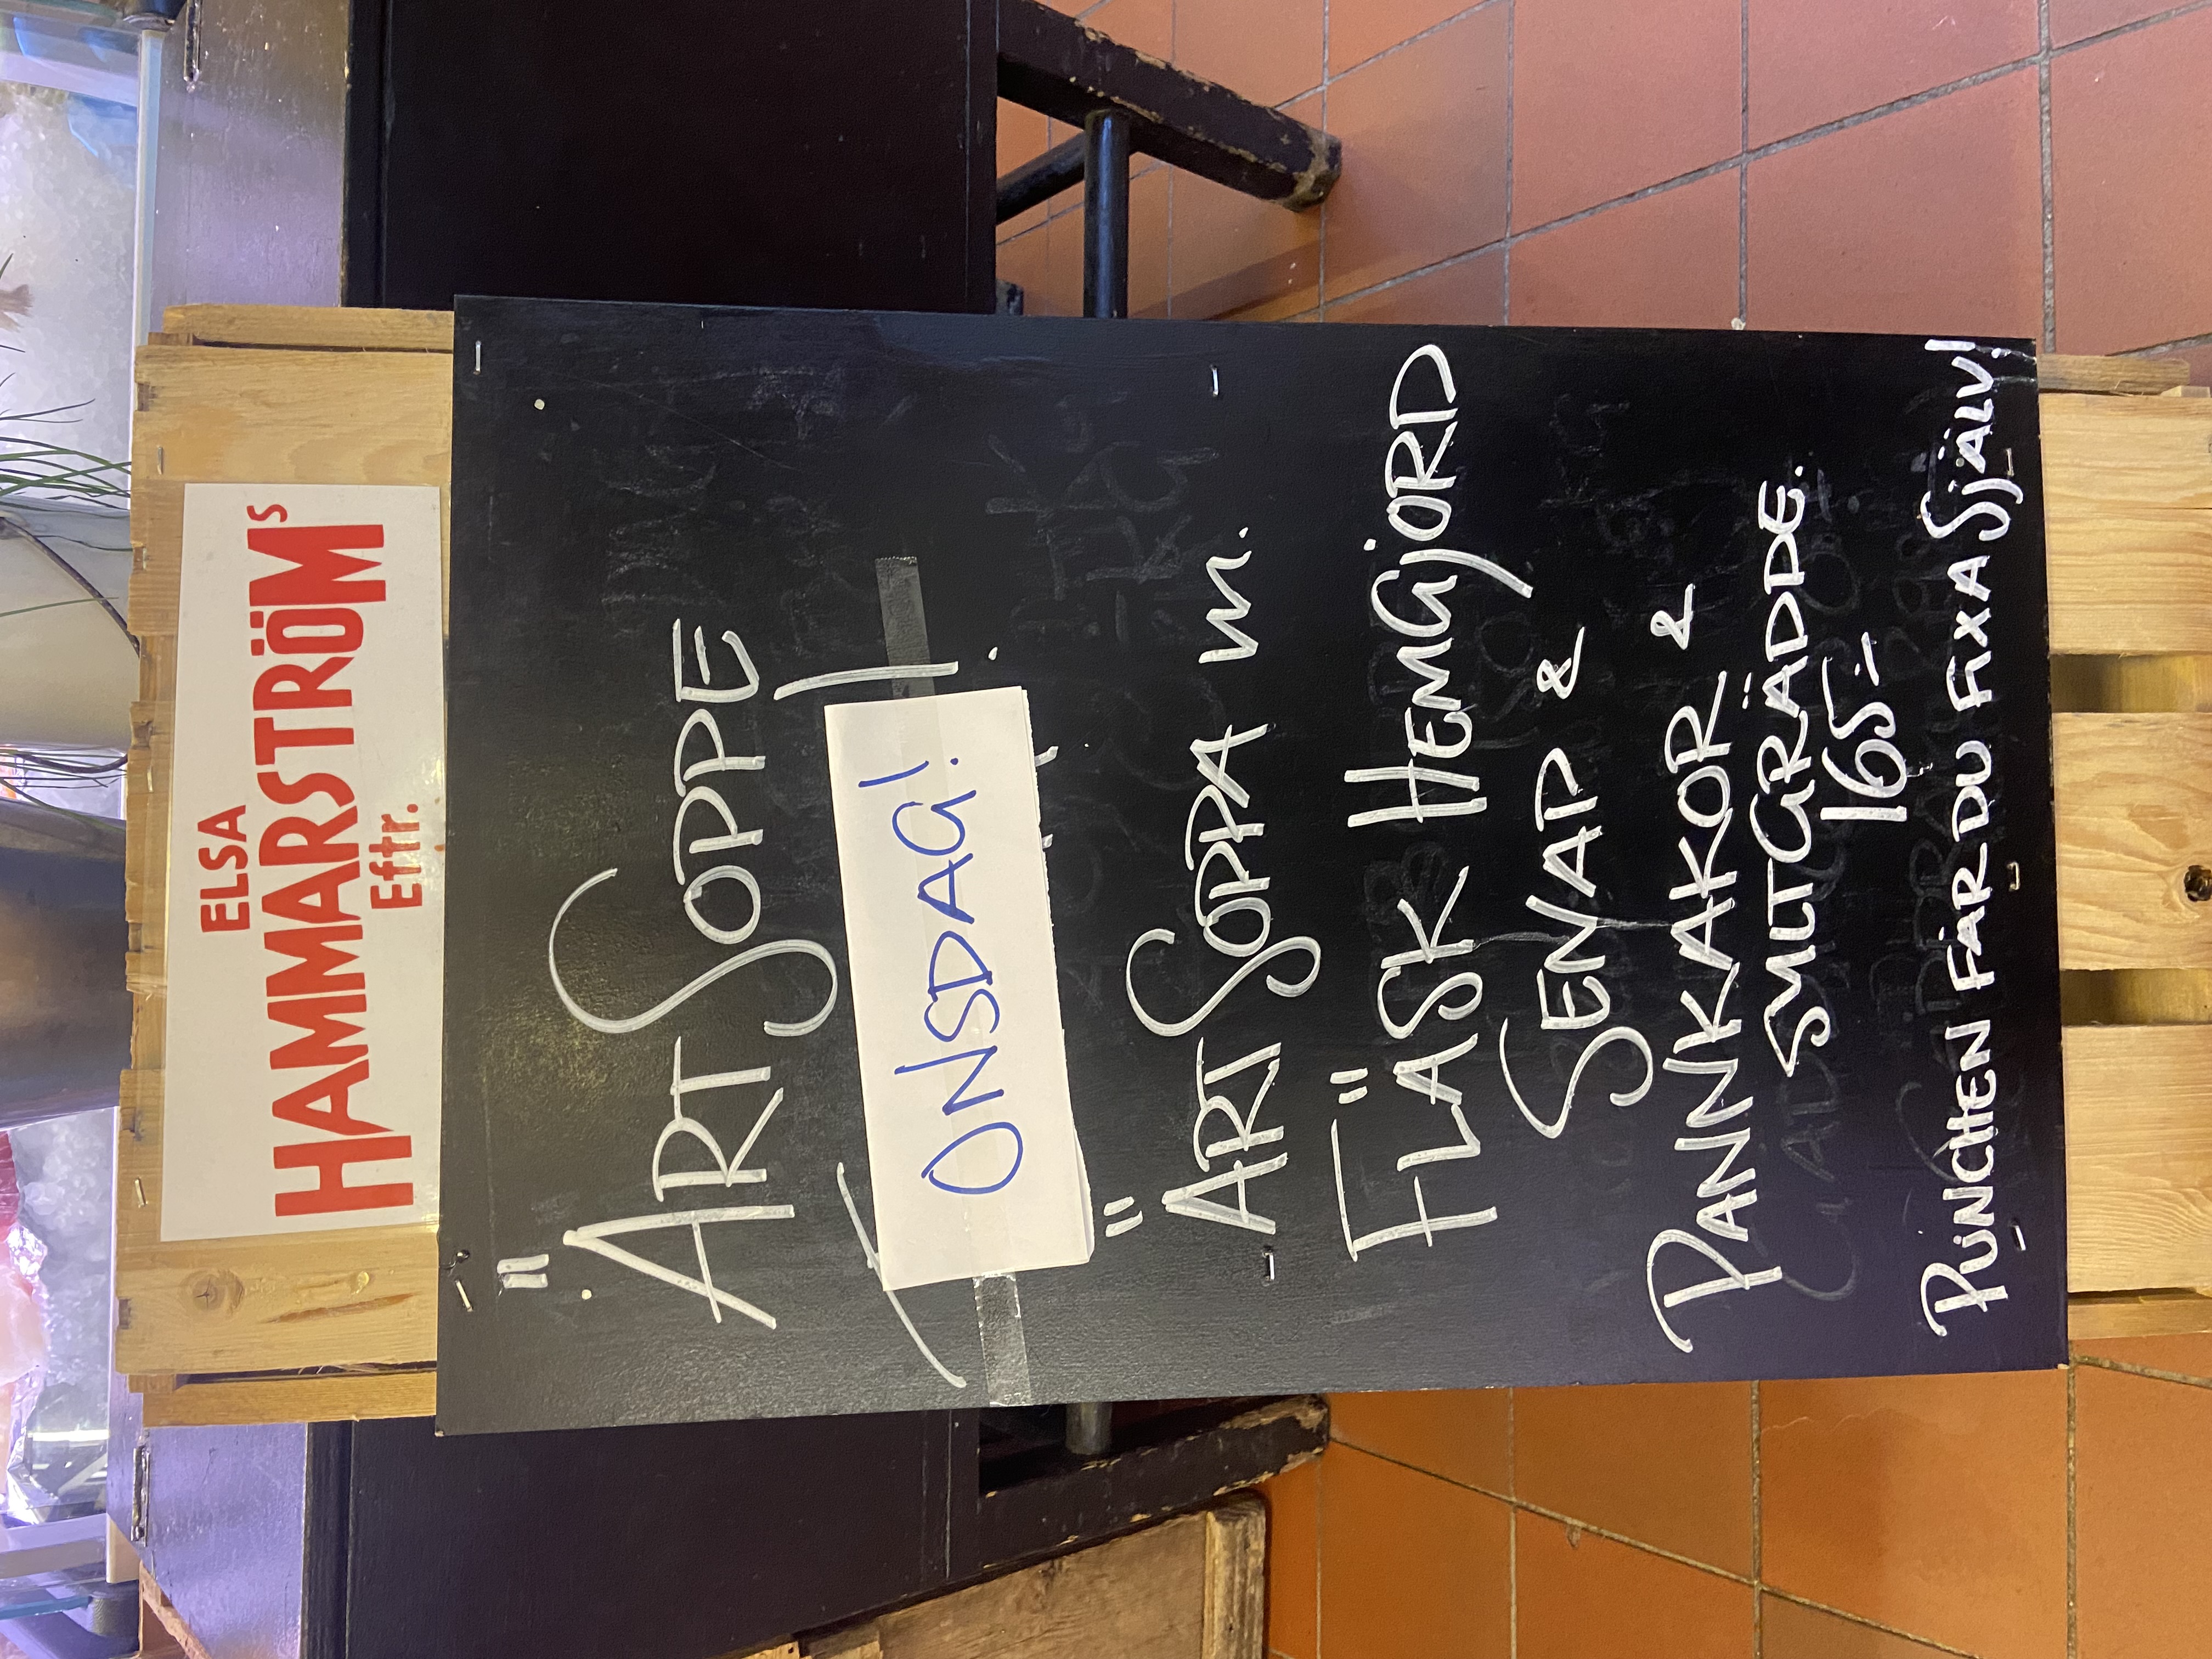 ELSA
HAMMARSTRÖMs
Eftr.
ÄRT SOPPE
ONSDAG!
ÄRT SOPA m.
FLÄSK HEMGJORD
SENAP &
PANNKAKOR &
SYLTGRÄDDE.
165:-
PUNCHEN FÅR DU FIXA SJÄLV!